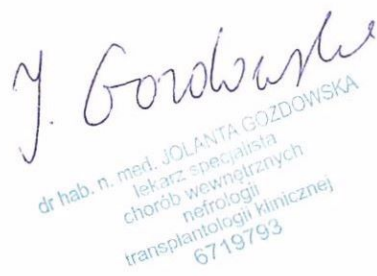 J. Gozdowska
dr hab. n. med. JOLANTA GOZDOWSKA
lekarz specjalista
chorób wewnętrznych
nefrologii
transplantologii klinicznej
6719793